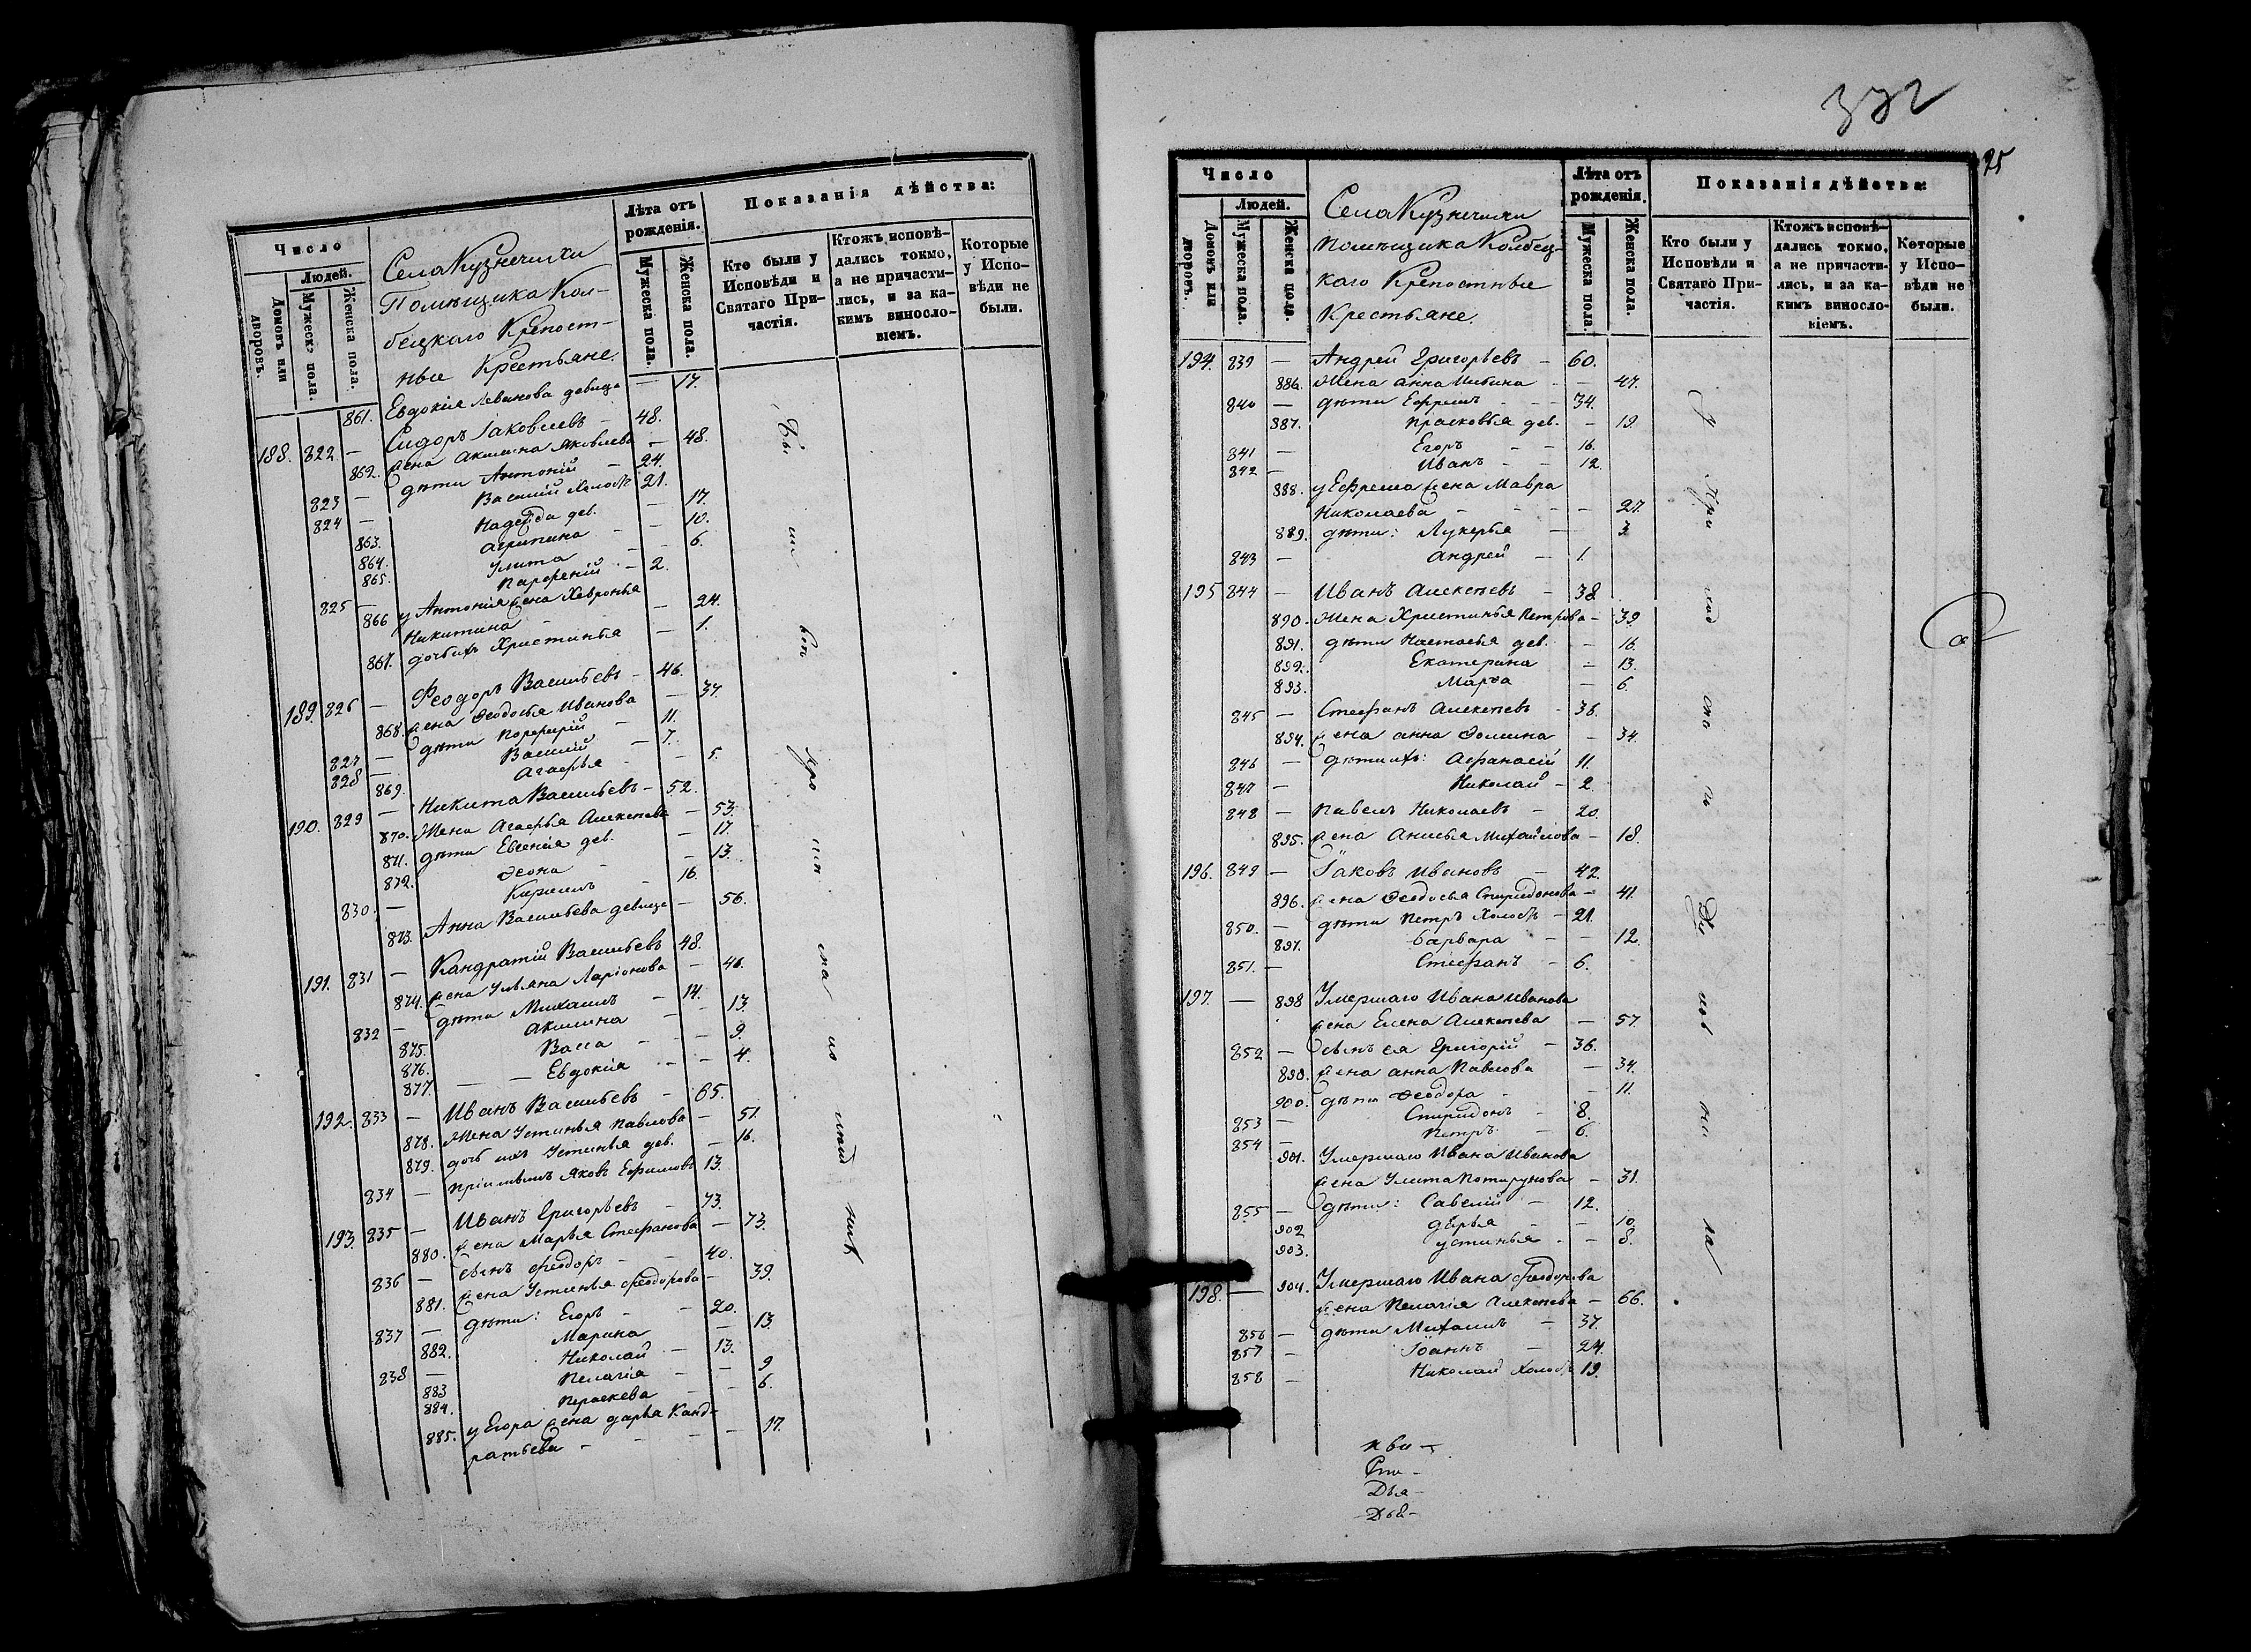 Число
Людей.
Домовъ или дворовъ.
Мужеска пола.
Женска пола.
Села Кузнечихи
Помѣщика Кол-
бецкаго Крепост-
ные Крестьяне.
Лѣта отъ рожденія.
Мужеска пола.
Женска пола.
Показанія дѣйства:
Кто были у Исповѣди и Святаго При-частія.
Ктожъ исповѣ-дались токмо, а не причасти-лись, и за ка-кимъ винослo-віемъ.
Которые у Испо-вѣди не были.
861. Евдокія Леванова девица — 17.
188. 822 — Сидоръ Іаковлевъ — 48.
862. жена Акилина Яковлева — 48.
823 — дѣти Антоній — 24.
824 — Василій Холостъ 21.
863. Надежда дев. — 17.
864. Агрипина — 10.
865. Улита — 6.
825 — Парфеній — 2.
866 у Антонія жена Хевронья
Никитина — 24.
867. дочь ихъ Христинья — 1.
189. 826 — Феодоръ Васильевъ — 46.
868. жена Феодосья Иванова — 37.
827 — дѣти Порфирій — 11.
828 — Василій — 7.
869. Агафья — 5.
190. 829 — Никита Васильевъ — 52.
870. Жена Агафья Алексѣева — 53.
871. дѣти Евгенія дев. — 17.
872. Феона — 13.
830. — Кирилъ — 16.
873. Анна Васильева девица — 56.
191. 831 — Кандратій Васильевъ 48.
874. жена Ульяна Ларіонова — 46.
832 — дѣти Михаилъ — 14.
875. Акилина — 13.
876. Васса — 9.
877. — — Евдокія — 4.
192. 833 — Иванъ Васильевъ — 65.
878. Жена Устинья Павлова — 51.
879. дочь ихъ Устинья дев. — 16.
834 — пріимышъ Яковъ Ефимовъ 13.
193. 835 — Иванъ Григорьевъ — 73.
880. жена Марья Стефанова — 73.
836 — сынъ Феодоръ — 40.
881. жена Устинья Феодорова — 39.
837 — дѣти: Егоръ — 20.
882. Марина — 13.
838 — Николай — 13.
883 Пелагія — 9
884. Пераскева — 6.
885. у Егора жена Дарья Канд-
ратьева — 17.
332
25
Число
Людей.
Домовъ или дворовъ.
Мужеска пола.
Женска пола.
Села Кузнечихи
Помѣщика Колбец-
каго Крепостные
Крестьяне.
Лѣта отъ рожденія.
Мужеска пола.
Женска пола.
Показанія дѣйства:
Кто были у Исповѣди и Святаго При-частія.
Ктожъ исповѣ-дались токмо, а не причасти-лись, и за ка-кимъ винослo-віемъ.
Которые у Испо-вѣди не были.
194. 839 — Андрей Григорьевъ — 60.
886. Жена Анна — 47.
840 — дѣти Ефремъ — 34.
887. Прасковья дев. — 19.
841 — Егоръ — 16.
842 — Иванъ — 12.
888. у Ефрема жена Мавра
Николаева — 27.
889. дѣти: Лукерья — 3
843 — Андрей — 1.
195 844 — Иванъ Алексѣевъ — 38.
890. Жена Христинья Петрова — 39.
891. дѣти Настасья дев. — 16.
892. Екатерина — 13.
893. Марѳа — 6.
845 — Стефанъ Алексѣевъ — 36.
894. жена Анна Фомина — 34.
846 — дѣти ихъ: Афанасій 11.
847 — Николай — 2.
848 — Павелъ Николаевъ — 20.
895. жена Анисья Михайлова — 18.
196. 849 — Іаковъ Ивановъ — 42.
896. жена Феодосья Спиридонова — 41.
850. — дѣти Петръ Холостъ — 21.
897. Варвара — 12.
851. — Стефанъ — 6.
197. — 898 Умершаго Ивана Иванова
жена Елена Алексѣева — 57.
852 — сынъ ея Григорій — 36.
899. жена Анна Павлова — 34.
900. дѣти Феодора — 11.
853 — Спиридонъ — 8.
854 — Петръ — 6.
901. Умершаго Ивана Иванова
жена Улита — 31.
855 — дѣти: Савелій — 12.
902 Дарья — 10.
903. Устинья — 8.
198. — 904. Умершаго Ивана Феодорова
жена Пелагія Алексѣева — 66.
856 — дѣти Михаилъ — 37.
857 — Іоаннъ — 24.
858 — Николай Холостъ 19.